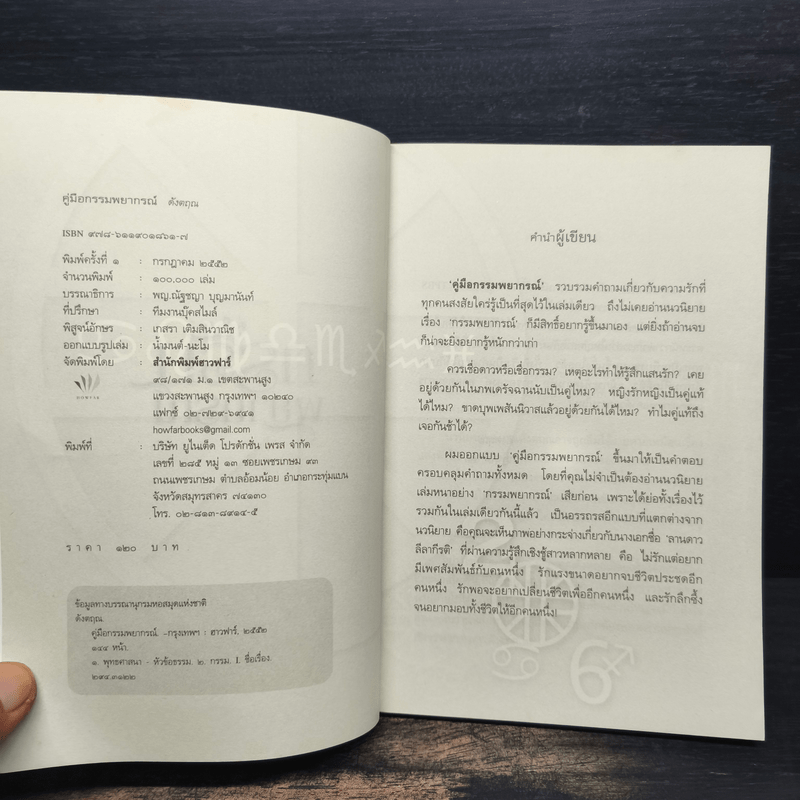 คู่มือกรรมพยากรณ์ ดังตฤณ
ISBN ๙๗๘-๖๑๑๙๐๑๘๖๑-๗
พิมพ์ครั้งที่ ๑ : กรกฎาคม ๒๕๕๒
จำนวนพิมพ์ : ๑๐๐,๐๐๐ เล่ม
บรรณาธิการ : พญ.ณัฐชญา บุญมานันท์
ที่ปรึกษา : ทีมงานบุ๊คสไมล์
พิสูจน์อักษร : เกสรา เติมสินวาณิช
ออกแบบรูปเล่ม : น้ำมนต์-นะโม
จัดพิมพ์โดย : สำนักพิมพ์ฮาวฟาร์
๙๘/๑๗๑ ม.๑ เขตสะพานสูง
แขวงสะพานสูง กรุงเทพฯ ๑๐๒๔๐
แฟกซ์ ๐๒-๗๒๙-๖๙๔๑
HOWFAR
howfarbooks@gmail.com
พิมพ์ที่ : บริษัท ยูไนเต็ด โปรดักชั่น เพรส จำกัด
เลขที่ ๒๘๕ หมู่ ๑๓ ซอยเพชรเกษม ๙๓
ถนนเพชรเกษม ตำบลอ้อมน้อย อำเภอกระทุ่มแบน
จังหวัดสมุทรสาคร ๗๔๑๓๐
โทร. ๐๒-๘๑๓-๘๙๑๔-๕
ราคา ๑๒๐ บาท
ข้อมูลทางบรรณานุกรมหอสมุดแห่งชาติ
ดังตฤณ.
คู่มือกรรมพยากรณ์. -กรุงเทพฯ : ฮาวฟาร์, ๒๕๕๒
๑๔๔ หน้า.
๑. พุทธศาสนา - หัวข้อธรรม. ๒. กรรม. I. ชื่อเรื่อง.
๒๙๔.๓๑๒๒
คำนำผู้เขียน
'คู่มือกรรมพยากรณ์' รวบรวมคำถามเกี่ยวกับความรักที่
ทุกคนสงสัยใคร่รู้เป็นที่สุดไว้ในเล่มเดียว ถึงไม่เคยอ่านนวนิยาย
เรื่อง 'กรรมพยากรณ์' ก็มีสิทธิ์อยากรู้ขึ้นมาเอง แต่ยิ่งถ้าอ่านจบ
ก็น่าจะยิ่งอยากรู้หนักกว่าเก่า
ควรเชื่อดาวหรือเชื่อกรรม? เหตุอะไรทำให้รู้สึกแสนรัก? เคย
อยู่ด้วยกันในภพเดรัจฉานนับเป็นคู่ไหม? หญิงรักหญิงเป็นคู่แท้
ได้ไหม? ขาดบุพเพสันนิวาสแล้วอยู่ด้วยกันได้ไหม? ทำไมคู่แท้ถึง
เจอกันช้าได้?
ผมออกแบบ 'คู่มือกรรมพยากรณ์' ขึ้นมาให้เป็นคำตอบ
ครอบคลุมคำถามทั้งหมด โดยที่คุณไม่จำเป็นต้องอ่านนวนิยาย
เล่มหนาอย่าง 'กรรมพยากรณ์' เสียก่อน เพราะได้ย่อทั้งเรื่องไว้
รวมกันในเล่มเดียวกันนี้แล้ว เป็นอรรถรสอีกแบบที่แตกต่างจาก
นวนิยาย คือคุณจะเห็นภาพอย่างกระจ่างเกี่ยวกับนางเอกชื่อ 'ลานดาว
ลีลากีรติ' ที่ผ่านความรู้สึกเชิงชู้สาวหลากหลาย คือ ไม่รักแต่อยาก
มีเพศสัมพันธ์กับคนหนึ่ง รักแรงขนาดอยากจบชีวิตประชดอีก
คนหนึ่ง รักพอจะอยากเปลี่ยนชีวิตเพื่ออีกคนหนึ่ง และรักลึกซึ้ง
จนอยากมอบทั้งชีวิตให้อีกคนหนึ่ง!